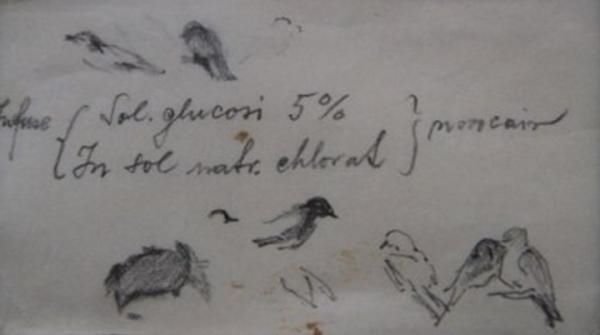 Infuse { Sol. glucosi 5% } novocain
{ In sol natr. chlorat